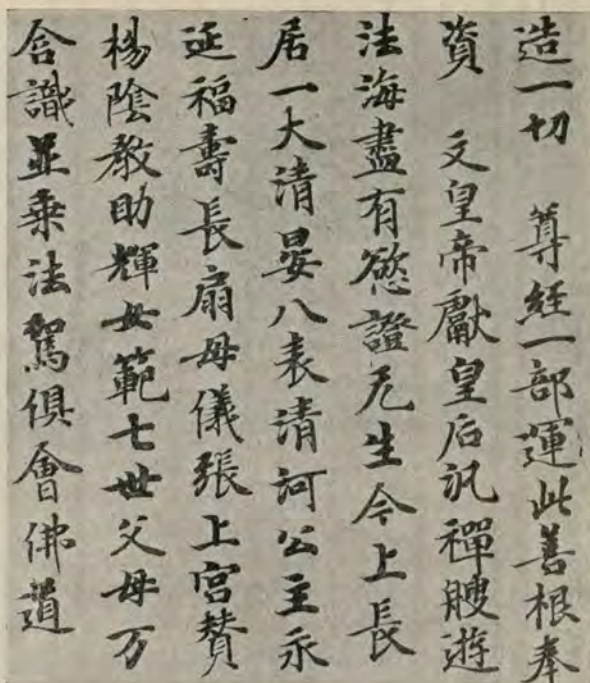 造一切 尊經一部運此善根奉
資 文皇帝獻皇后汎禪艘遊
法海盡有慾證无生今上長
居一大清晏八表清河公主永
延福壽長扇母儀張上宮賛
楊陰教助輝女範七世父母万
含識並乗法駕俱會佛道